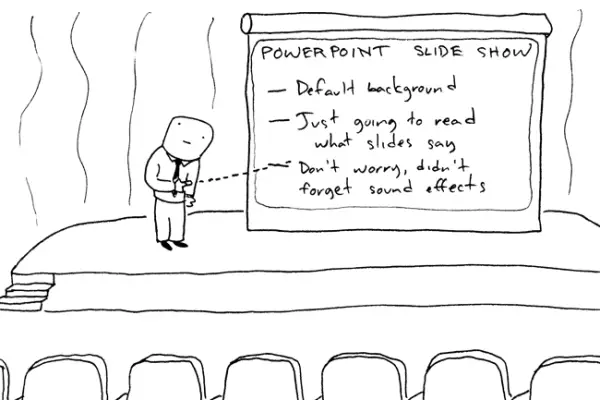 POWERPOINT SLIDE SHOW
— Default background
— Just going to read
what slides say
— Don't worry, didn't
forget sound effects